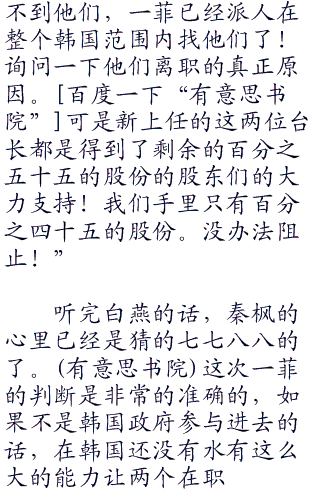 不到他们，一菲已经派人在
整个韩国范围内找他们了！
询问一下他们离职的真正原
因。[百度一下“有意思书
院”]可是新上任的这两位台
长都是得到了剩余的百分之
五十五的股份的股东们的大
力支持！我们手里只有百分
之四十五的股份。没办法阻
止！”
听完白燕的话，秦枫的
心里已经是猜的七七八八的
了。(有意思书院)这次一菲
的判断是非常的准确的，如
果不是韩国政府参与进去的
话，在韩国还没有水有这么
大的能力让两个在职